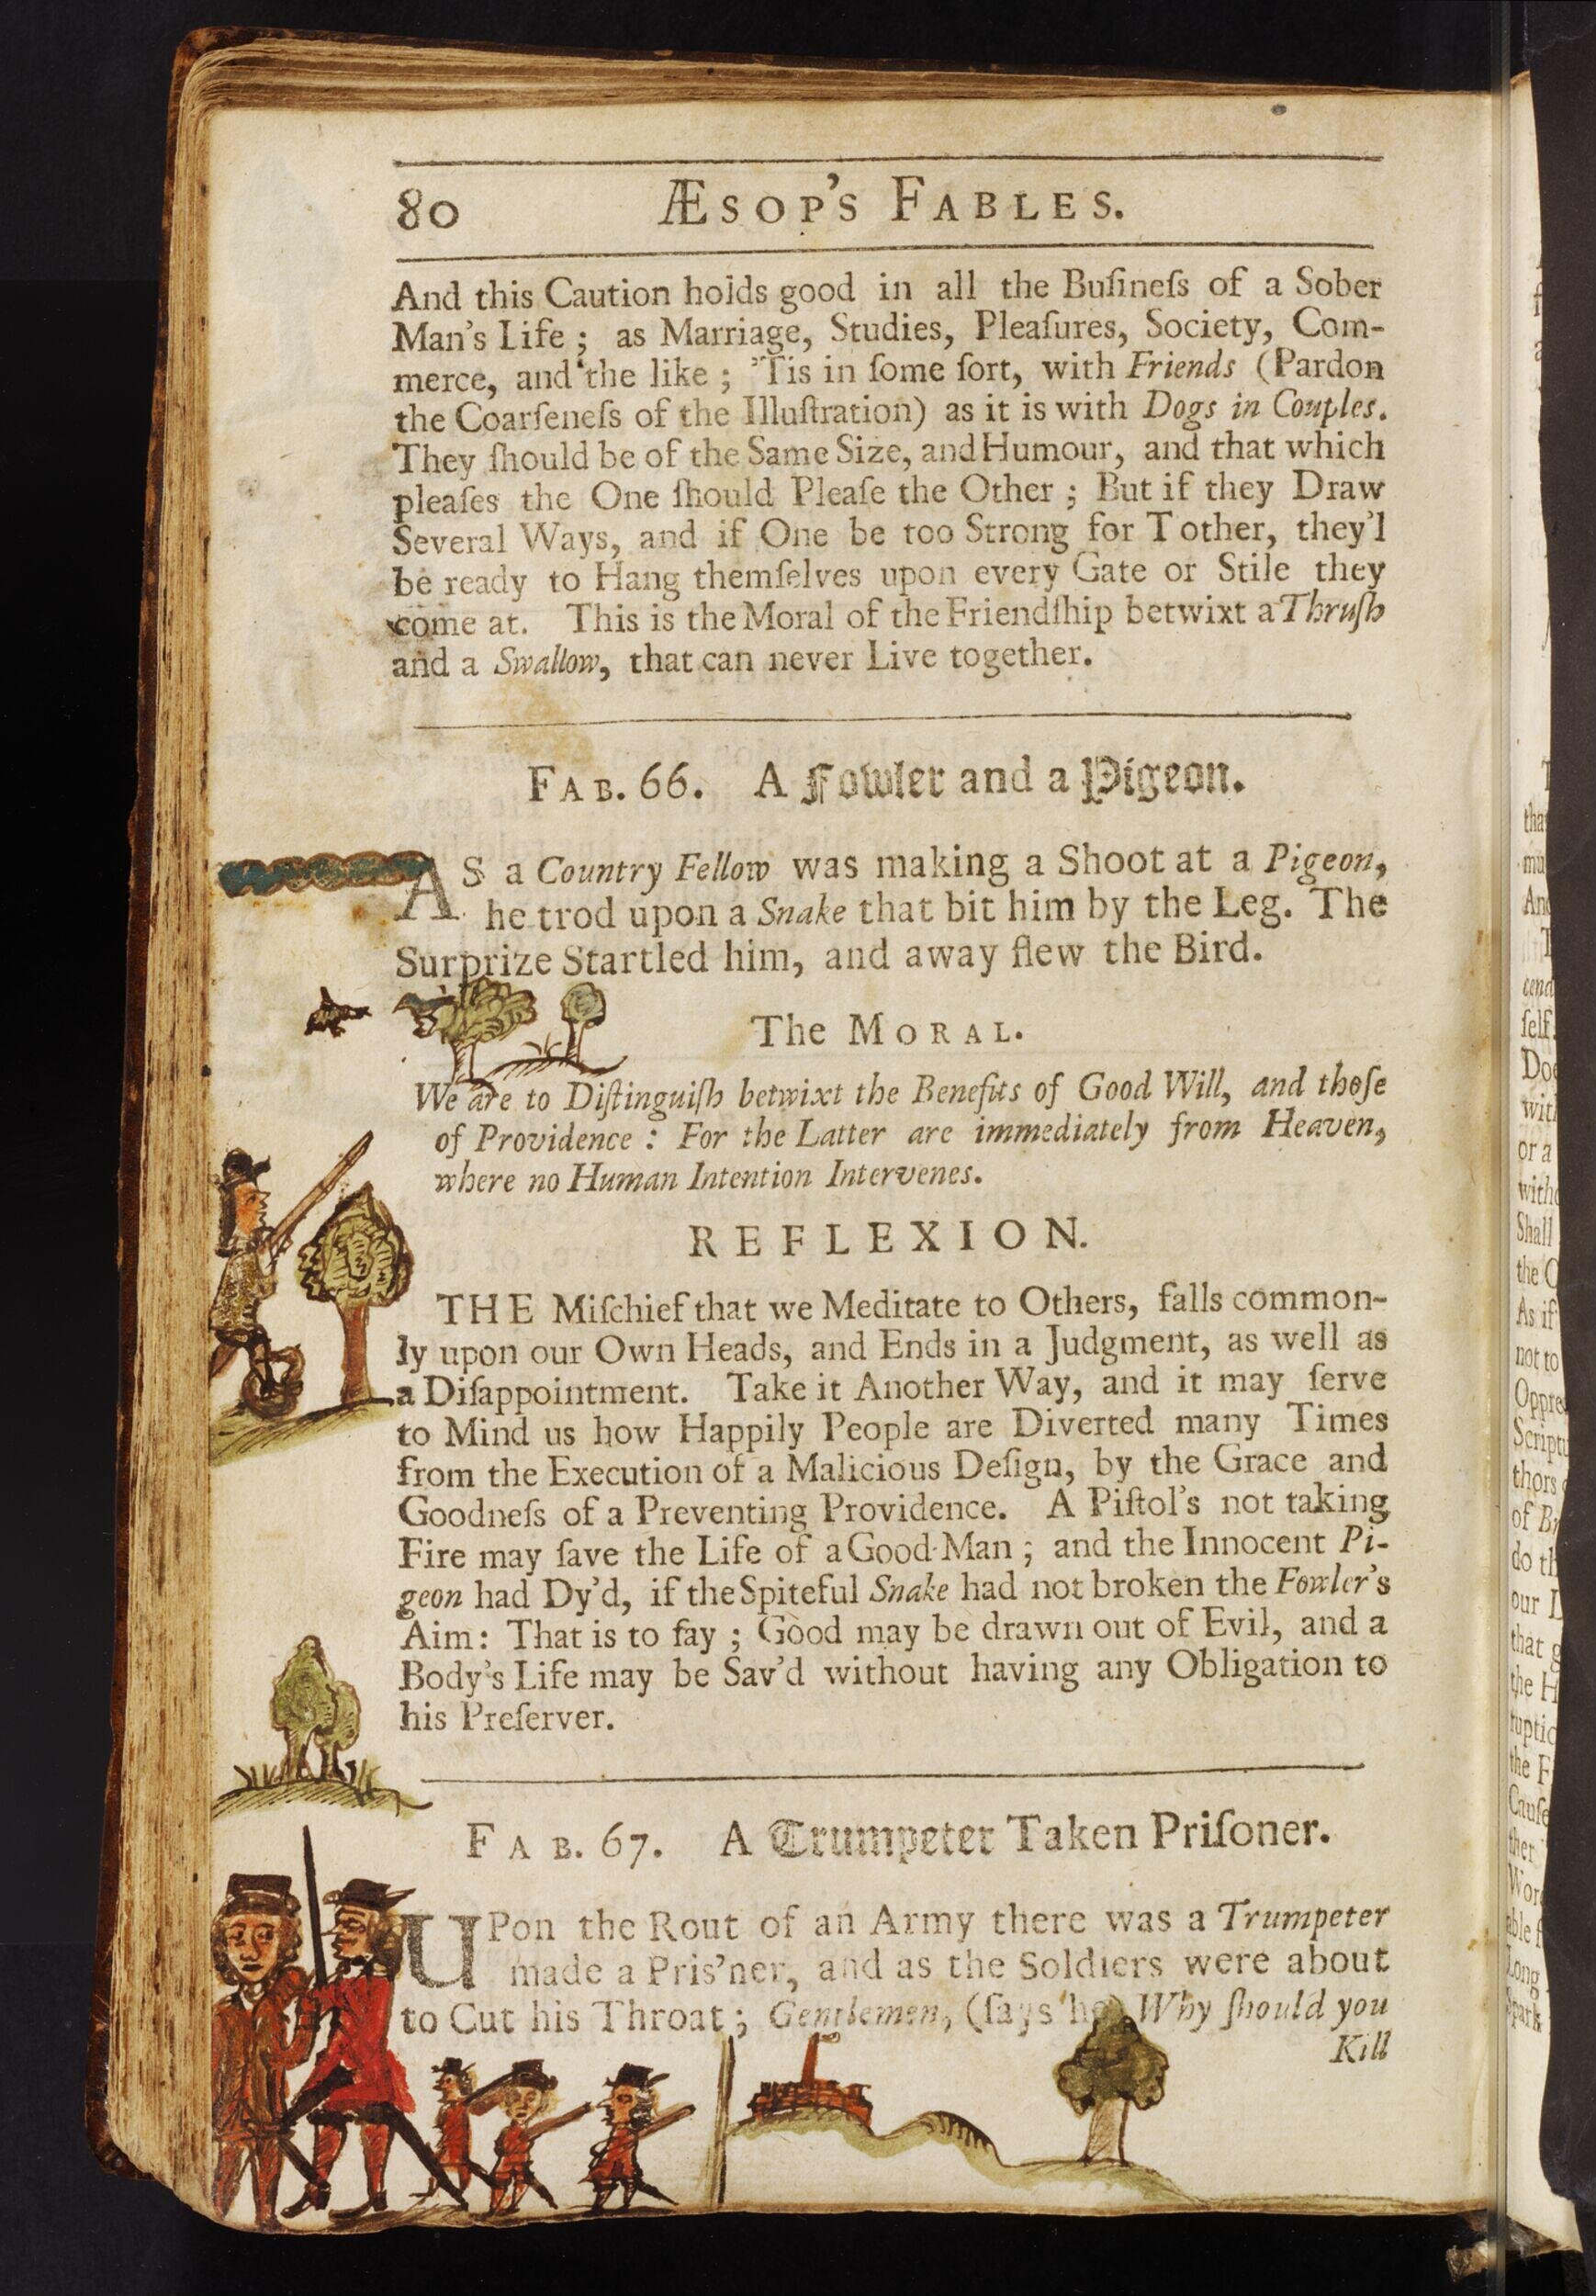 80 ÆSOP'S FABLES.
And this Caution holds good in all the Buſineſs of a Sober
Man's Life ; as Marriage, Studies, Pleaſures, Society, Com-
merce, and the like ; 'Tis in ſome ſort, with Friends (Pardon
the Coarſeneſs of the Illuſtration) as it is with Dogs in Couples.
They ſhould be of the Same Size, and Humour, and that which
pleaſes the One ſhould Pleaſe the Other ; But if they Draw
Several Ways, and if One be too Strong for T other, they'l
be ready to Hang themſelves upon every Gate or Stile they
come at. This is the Moral of the Friendſhip betwixt a Thruſh
and a Swallow, that can never Live together.
FAB. 66. A Fowler and a Pigeon.
AS a Country Fellow was making a Shoot at a Pigeon,
he trod upon a Snake that bit him by the Leg. The
Surprize Startled him, and away flew the Bird.
The MORAL.
We are to Diſtinguiſh betwixt the Benefits of Good Will, and thoſe
of Providence : For the Latter are immediately from Heaven,
where no Human Intention Intervenes.
REFLEXION.
THE Miſchief that we Meditate to Others, falls common-
ly upon our Own Heads, and Ends in a Judgment, as well as
a Diſappointment. Take it Another Way, and it may ſerve
to Mind us how Happily People are Diverted many Times
from the Execution of a Malicious Deſign, by the Grace and
Goodneſs of a Preventing Providence. A Piſtol's not taking
Fire may ſave the Life of a Good Man ; and the Innocent Pi-
geon had Dy'd, if the Spiteful Snake had not broken the Fowler's
Aim: That is to ſay ; Good may be drawn out of Evil, and a
Body's Life may be Sav'd without having any Obligation to
his Preſerver.
FAB. 67. A Trumpeter Taken Priſoner.
UPon the Rout of an Army there was a Trumpeter
made a Pris'ner, and as the Soldiers were about
to Cut his Throat ; Gentlemen, (ſays he) Why ſhould you
Kill